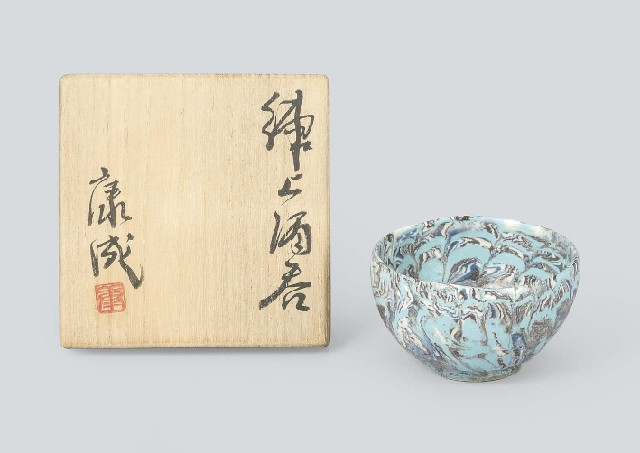 練上酒呑
康成